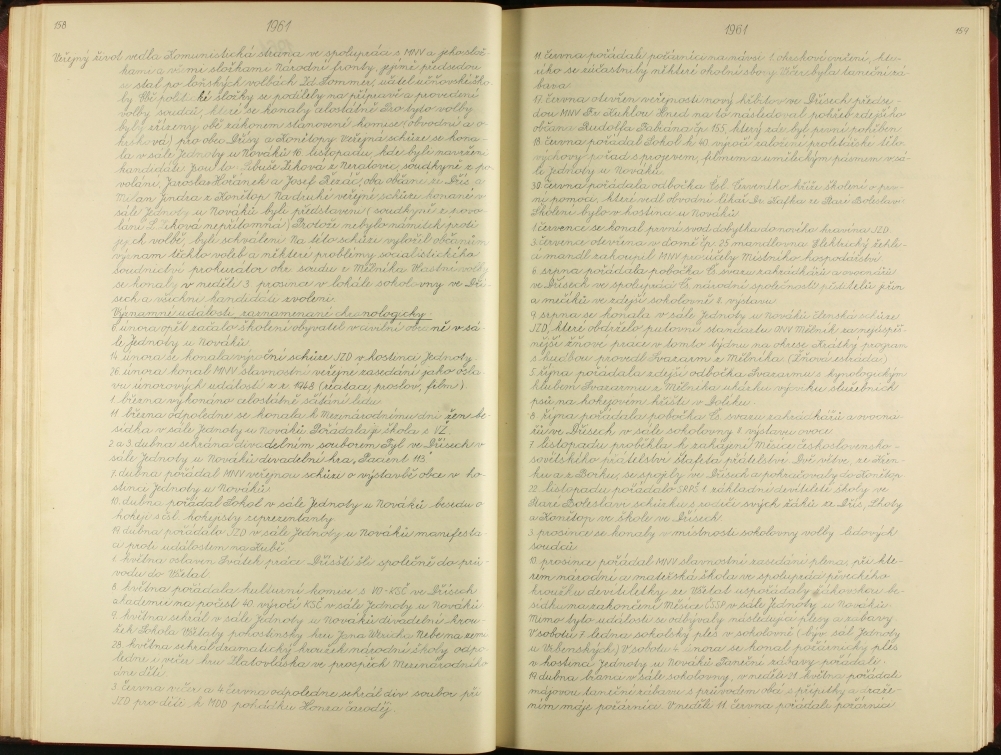 158
1961
Veřejný život vedla Komunistická strana ve spolupráci s MNV a jeho slož-
kami a všemi složkami Národní fronty, jejímž předsedou
se stal po loňských volbách Zd. Kommer, učitel učňovské ško-
by. Obě polit. složky se podílely na přípravě a provedení
volby soudců, které se konaly celostátně. Pro tyto volby
byly zřízeny obě zákonem stanovené komise (obvodní a o-
krsková) pro obec Dřísy a Konětopy. Veřejná schůze se kona-
la v sále Jednoty u Nováků 16. listopadu, kde byli navrženi
kandidáti. Jsou to: Libuše z Neratovic, soudkyně z po-
volání, Jaroslav Hořánek a Josef Řezáč, oba občané ze Dřís a
Milan Jindra z Konětop. Na druhé veřejné schůzi konané v
sále Jednoty u Nováků byli představeni (soudkyně z povo-
lání L. nepřítomna). Protože nebylo námitek proti
jejich volbě, byli schváleni. Na této schůzi vyložil občanům
význam těchto voleb a některé problémy socialistického
soudnictví prokurátor okr. soudu z Mělníka. Vlastní volby
se konaly v neděli 3. prosince v lokále sokolovny ve Dří-
sech a všichni kandidáti zvoleni.
Významné události zaznamenané chronologicky:
6. února opět začalo školení obyvatel v civilní obraně v sá-
le Jednoty u Nováků.
14. února se konala výroční schůze JZD v hostinci Jednoty.
26. února konal MNV slavnostní veřejné zasedání jako osla-
vu únorových událostí z r. 1948 (recitace, proslov, film).
1. března vykonáno celostátně sčítání lidu.
11. března odpoledne se konala k Mezinárodnímu dni žen be-
sídka v sále Jednoty u Nováků. Pořádala ji škola z VŽ.
2. a 3. dubna sehrána divadelním souborem Tyl ve Dřísech v
sále Jednoty u Nováků divadelní hra „Pacient 113."
7. dubna pořádal MNV veřejnou schůzi o výstavbě obce v ho-
stinci Jednoty u Nováků.
10. dubna pořádal Sokol v sále Jednoty u Nováků besedu o
hokeji s čsl. hokejisty reprezentanty.
19. dubna pořádalo JZD v sále Jednoty u Nováků manifesta-
ci proti událostem na Kubě.
1. května oslaven Svátek práce. Dřísští šli společně do prů-
vodu do Všetat.
8. května pořádala kulturní komise s VO-KSČ ve Dřísech
akademii na počest 40. výročí KSČ v sále Jednoty u Nováků.
9. května sehrál v sále Jednoty u Nováků divadelní krou-
žek Sokola Všetaty pohostinsky hru Jana Wericha Nebe na zemi.
28. května sehrál dramatický kroužek národní školy odpo-
ledne i večer hru Zlatovláska ve prospěch Mezinárodního
dne dětí.
3. června večer a 4. června odpoledne sehrál div. soubor při
JZD pro děti k MDD pohádku Honza čaroděj.
1961
159
11. června pořádali požárníci na návsi 1. okrskové cvičení, kte-
rého se zúčastnily některé okolní sbory. Večer byla taneční zá-
bava.
17. června otevřen veřejnosti nový hřbitov ve Dřísech předse-
dou MNV Fr. Kuklou. Hned na to následoval pohřeb zdejšího
občana Rudolfa čp. 155, který zde byl první pohřben.
18. června pořádal Sokol k 40. výročí založení proletářské tělo-
výchovy pořad s projevem, filmem a uměleckým pásmem v sá-
le Jednoty u Nováků.
30. června pořádala odbočka Čsl. červeného kříže školení o prv-
ní pomoci, které vedl obvodní lékař Dr. Kafka ze Staré Boleslavi.
Školení bylo v hostinci u Nováků.
1. července se konal první svod dobytka do nového kravína JZD.
3. července otevřena v domě čp. 25 mandlovna. Elektrický žehli-
a mandl zakoupil MNV pro účely Místního hospodářství.
6. srpna pořádala pobočka Čs. svazu zahrádkářů a ovocnářů
ve Dřísech ve spolupráci Čs. národní společností pěstitelů jiřin
a mečíků ve zdejší sokolovně 2. výstavu.
9. srpna se konala v sále Jednoty u Nováků členská schůze
JZD, které obdrželo putovní standartu ONV Mělník za nejúspěš-
nější žňové práce v tomto týdnu na okrese. Krátký program
s hudbou provedl Svazarm z Mělníka. (Žňová estráda).
5. října pořádala zdejší odbočka Svazarmu s kynologickým
klubem Svazarmu z Mělníka ukázku výcviku služebních
psů na hokejovém hřišti v Dolíku.
8. října pořádala pobočka Čs. svazu zahrádkářů a ovocná-
řů ve Dřísech v sále sokolovny 2. výstavu ovoce.
7. listopadu proběhla k zahájení Měsíce československo-
sovětského přátelství štafeta přátelství. Dvě větve, ze Křen-
ku a z Borku, se spojily ve Dřísech a pokračovaly do Konětop.
22. listopadu pořádalo SRPŠ 1. základní devítileté školy ve
Staré Boleslavi schůzku s rodiči svých žáků ze Dřís, Lhoty
a Konětop ve škole ve Dřísech.
3. prosince se konaly v místnosti sokolovny volby lidových
soudců.
10. prosince pořádal MNV slavnostní zasedání pléna, při kte-
rém národní a mateřská škola ve spolupráci pěveckého
kroužku devítiletky ze Všetat uspořádaly žákovskou be-
sídku na zakončení Měsíce ČSSP v sále Jednoty u Nováků.
Mimo tyto události se odbývaly následující plesy a zábavy.
V sobotu 7. ledna sokolský ples v sokolovně (býv. sál Jednoty
u Vrbenských). V sobotu 4. února se konal požárnický ples
v hostinci Jednoty u Nováků. Taneční zábavy pořádali:
19. dubna brana v sále sokolovny, v neděli 21. května pořádali
májovou taneční zábavu s průvodem obcí, s přípitky a zraže-
ním máje požárníci. V neděli 11. června pořádali požárníci